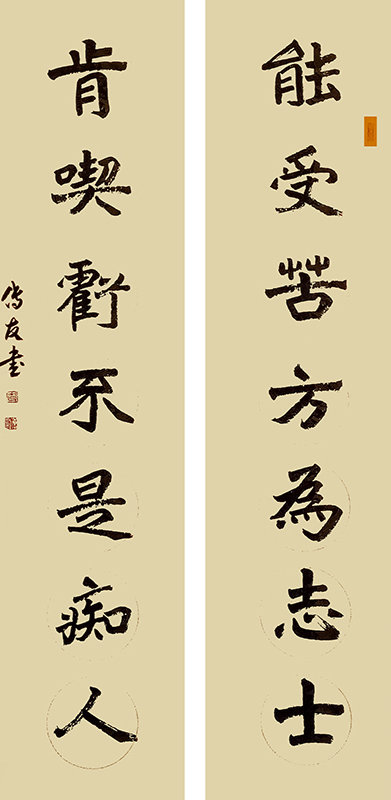 能受苦方為志士
肯喫虧不是痴人
傳友書